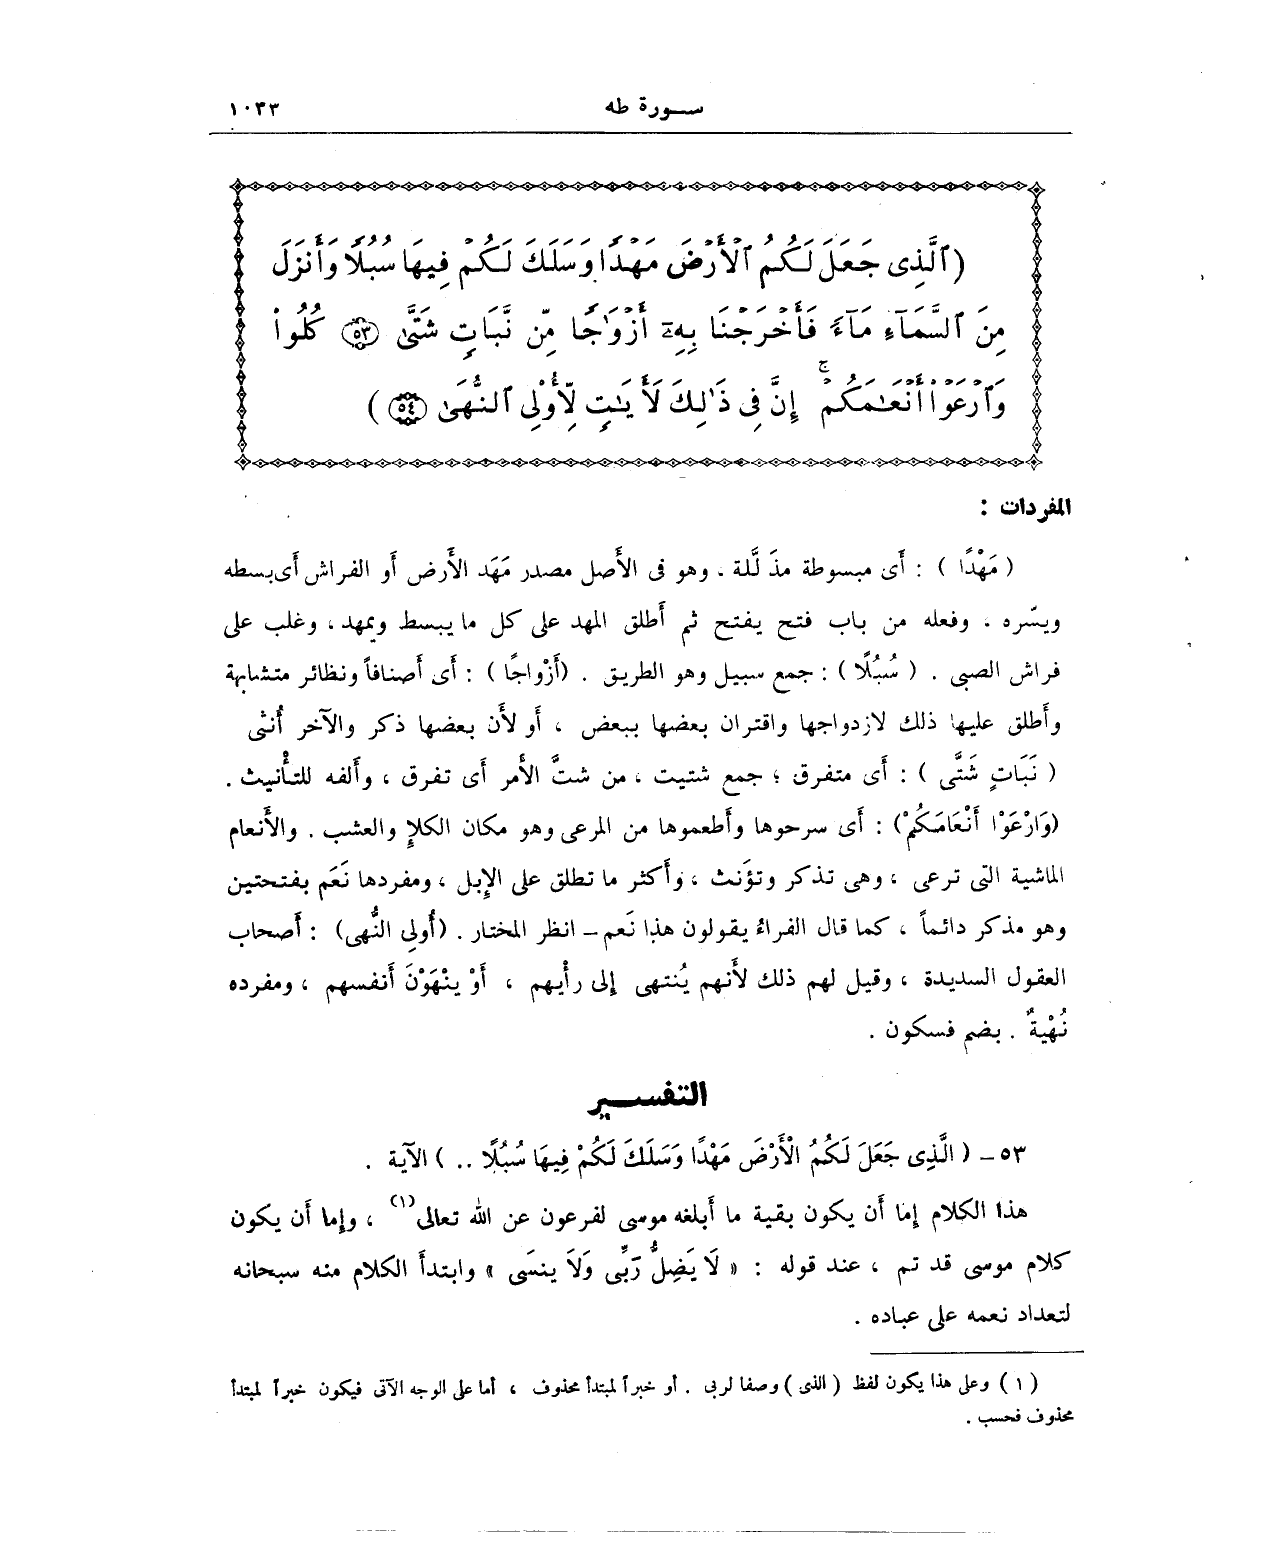 سـورة طه ١٠٣٣
(ٱلَّذِى جَعَلَ لَكُمُ ٱلْأَرْضَ مَهْدًا وَسَلَكَ لَكُمْ فِيهَا سُبُلًا وَأَنزَلَ
مِنَ ٱلسَّمَآءِ مَآءً فَأَخْرَجْنَا بِهِۦٓ أَزْوَٰجًا مِّن نَّبَاتٍ شَتَّىٰ ٥٣ كُلُوا۟
وَٱرْعَوْا۟ أَنْعَـٰمَكُمْ ۚ إِنَّ فِى ذَٰلِكَ لَأَيَـٰتٍ لِّأُو۟لِى ٱلنُّهَىٰ ٥٤)
المفردات :
( مَهْدًا ) : أَى مبسوطة مذَلَّلة . وهو فى الأَصل مصدر مَهَد الأَرض أَو الفراش أَى بسطه
ويسّره . وفعله من باب فتح يفتح ثم أَطلق المهد على كل ما يبسط ويمهد ، وغلب على
فراش الصبى . ( سُبُلًا ) : جمع سبيل وهو الطريق . (أَزْواجًا ) : أَى أَصنافاً ونظائر متشابهة
وأَطلق عليها ذلك لازدواجها واقتران بعضها ببعض ، أَو لأَن بعضها ذكر والآخر أُنثى
( نَبَاتٍ شَتَّى ) : أَى متفرق ؛ جمع شتيت ، من شتَّ الأَمر أَى تفرق ، وأَلفه للتأْنيث .
(وَارْعَوْا أَنْعَامَكُمْ) : أَى سرحوها وأَطعموها من المرعى وهو مكان الكلإِ والعشب . والأَنعام
الماشية التى ترعى ، وهى تذكر وتؤَنث ، وأَكثر ما تطلق على الإِبل ، ومفردها نَعَم بفتحتين
وهو مذكر دائماً ، كما قال الفراءُ يقولون هذا نَعم – انظر المختار . (أُولِى النُّهى) : أَصحاب
العقول السديدة ، وقيل لهم ذلك لأَنهم يُنتهى إِلى رأْيهم ، أَوْ ينْهَوْنَ أَنفسهم ، ومفرده
نُهْيةٌ . بضم فسكون .
التفسـير
٥٣ – ( الَّذِى جَعَلَ لَكُمُ الْأَرْضَ مَهْدًا وَسَلَكَ لَكُمْ فِيهَا سُبُلًا .. ) الآية .
هذا الكلام إِما أَن يكون بقية ما أَبلغه موسى لفرعون عن الله تعالى (١) ، وإِما أَن يكون
كلام موسى قد تم ، عند قوله : « لَا يَضِلُّ رَبِّى وَلَا ينسَى » وابتدأَ الكلام منه سبحانه
لتعداد نعمه على عباده .
( ١ ) وعلى هذا يكون لفظ ( الذى ) وصفا لربى . أو خبراً لمبتدأ محذوف ، أما على الوجه الآتى فيكون خبراً لمبتدأ
محذوف فحسب .